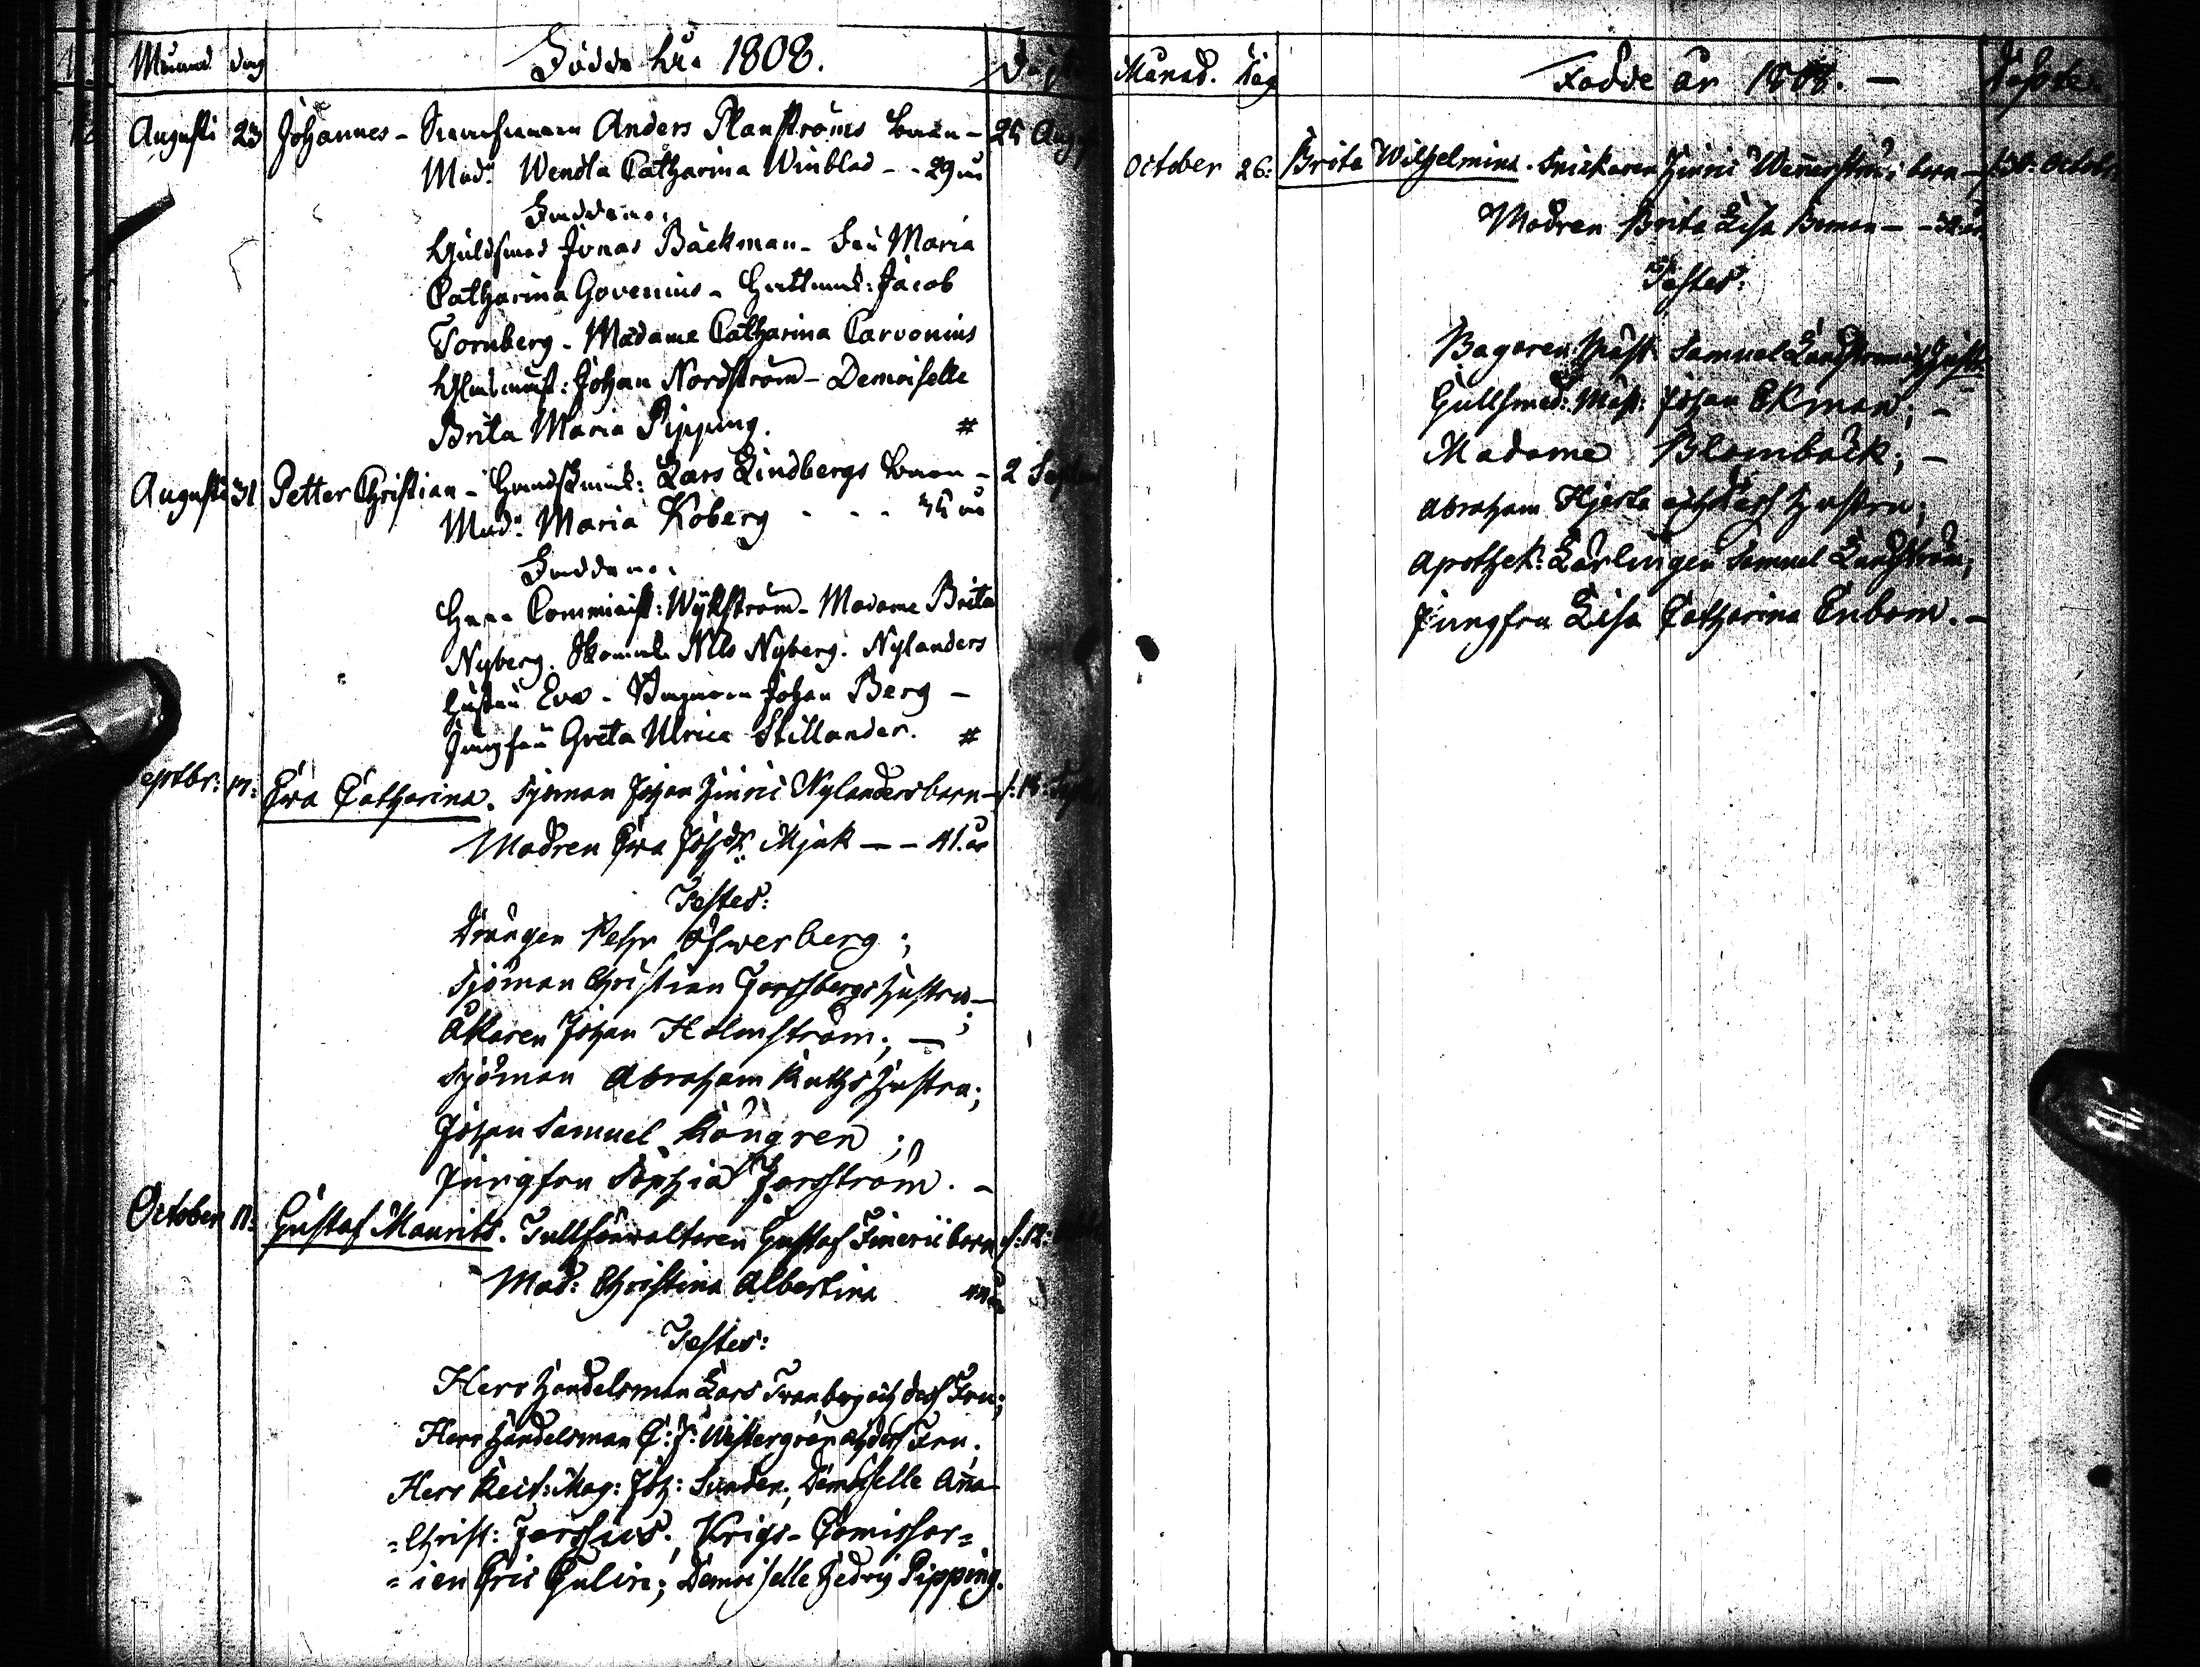 Månad dag Födde år 1808.
Augusti 23 Johannes - Anders Planströms barn - 25 Aug
Mod: Wendla Catharina Winblad - - 29 år
Faddrar:
Guldsmed Jonas Bäckman - Fru Maria
Catharina Govenius - Jacob
Tornberg - Madame Catharina Carvonius
Johan Nordström - Demoiselle
Brita Maria Pipping. #
Augusti 31 Petter Christian - Lars Lindbergs barn - 2 Septem
Mod: Maria Koberg - - - år
Faddrar:
Herr Wykström - Madame Brita
Nyberg. Skomak Nils Nyberg. Nylanders
hustru Eva - Johan Berg -
Jungfru Greta Ulrica Stillander. #
eptbr: 17: Ewa Catharina. Sjöman Johan Hinric Nylanders barn - d: 18: Sept
Modren Ewa Joh:dr Mjuk - - 41 år
Testes:
Drängen Pehr Öfwerberg;
Sjöman Christian Forssbergs hustru -;
Åkaren Johan Holmström; -
Sjöman Abraham Ruths hustru;
Johan Samuel Röngren;
Jungfru Sophia Forsström. -
October 11: Gustaf Maurits. Tullförwaltaren Gustaf Finerii barn d: 12:
Mod: Christina Albertina
Testes:
Herr Handelsman Lars Tranberg och dess Fru;
Herr Handelsman C: J: Westergren och dess Fru;
Herr Rect: Mag: Joh: Sunden; Demoiselle Anna
=Christ: Forssius; Krigs-Comissar=
=ien Eric Gulin; Demoiselle Hedvig Pipping.
Månad. Dag Födde år 1808. - Döpte.
October 26: Brita Wilhelmina. Snickaren Hinric Wennerströms barn - d: 30: Octobr:
Modren Brita Lisa Boman - - år
Testes:
Bagaren Mäst: Samuel Landströms hustr
Gullsmed: Mäst: Johan Ekman; -
Madame Blombäck; -
Abraham Hjerta och dess hustru;
Apothek: Lärlingen Samuel Landström;
Jungfru Lisa Catharina Enbom. -